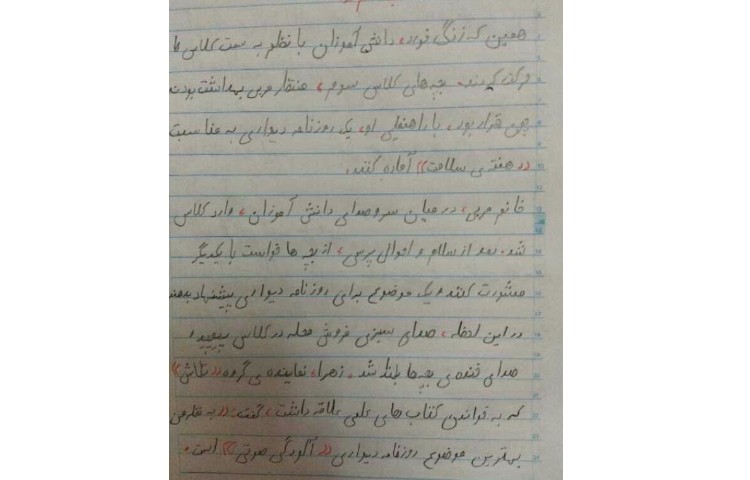 همین که زنگ خورد، دانش آموزان با نظم به سمت کلاس ها
حرکت کردند. بچه های کلاس سوم، منتظر مربی بهداشت بودند
چون قرار بود، با راهنمایی او، یک روزنامه دیواری به مناسبت
((هفته ی سلامت)) آماده کنند.
خانم مربی، در میان سر و صدای دانش آموزان، وارد کلاس
شد. بعد از سلام و احوال پرسی، از بچه ها خواست با یکدیگر
مشورت کنند و یک موضوع برای روزنامه دیواری پیشنهاد بدهند
در این لحظه، صدای سبزی فروش محله در کلاس پیچید و
صدای خنده ی بچه ها بلند شد. زهرا، نماینده ی گروه ((تلاش))
که به خواندن کتاب های علمی علاقه داشت، گفت: ((به نظر من
بهترین موضوع روزنامه دیواری ((آلودگی صوتی)) است.